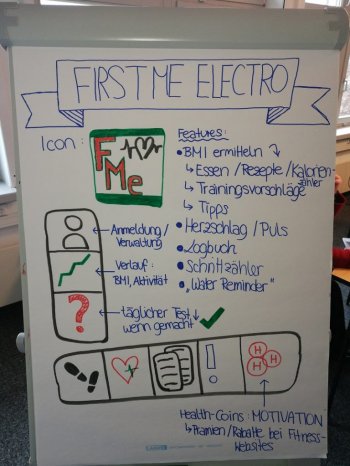 FIRSTME ELECTRO
Icon:
FMe
Features:
• BMI ermitteln
↳ Essen / Resepte / Kalorien-
zähler
↳ Trainingsvorschläge
↳ Tipps
• Herzschlag / Puls
• Logbuch
• Schrittzähler
• „Water Reminder"
← Anmeldung /
Verwaltung
← Verlauf:
BMI, Aktivität
?
← täglicher Test,
wenn gemacht ✓
!
H
H H
Health-Coins: MOTIVATION
↳ Prämien / Rabatte bei Fitness-
Websites